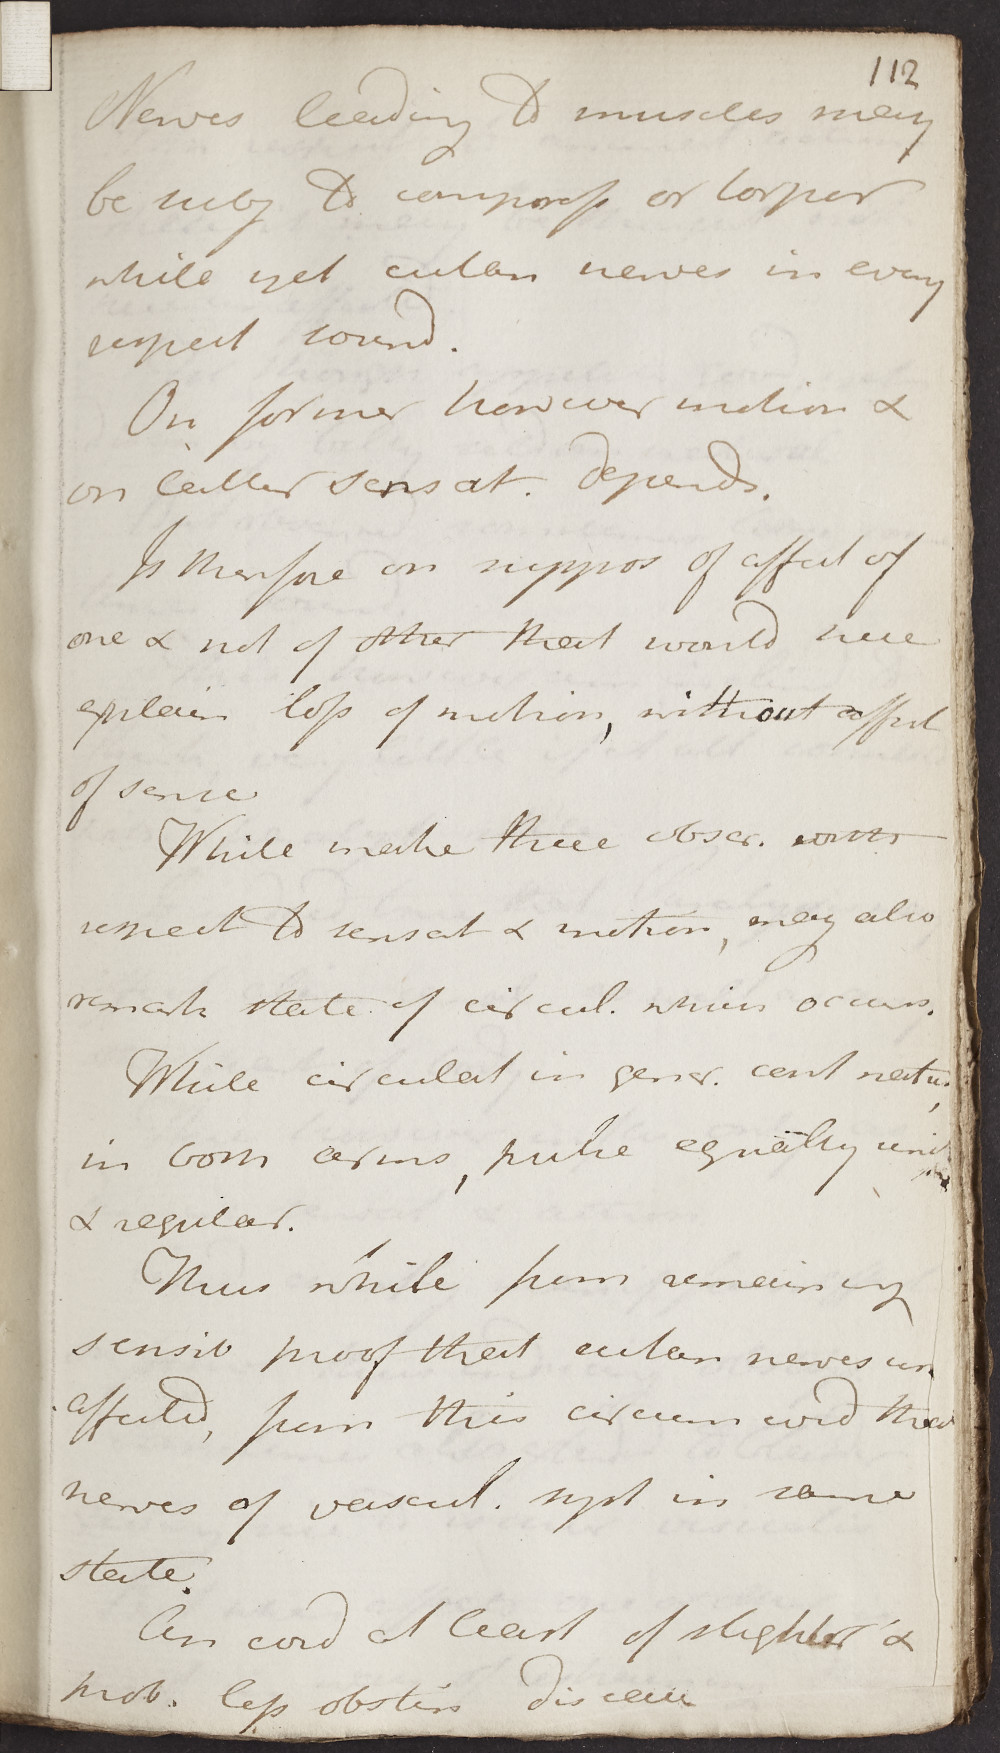 112
Nerves leading to muscles may
be subj to compress or torpor
while yet cutan nerves in every
respect sound.
On former however motion &
on latter sensat. depends.
Is therefore on suppos of affect of
one & not of other that would here
explain loss of motion, without affect
of sense
While make these obser. with
respect to sensat & motion, may also
remark state of circul. which occurs.
While circulat in gener. cont natu
in both arms, pulse equally
& regular.
Thus while from remaining
sensib proof that cutan nerves un
affected, from this circum cond that
nerves of vascul. syst in same
state.
An cond at least of slighter &
prob. less obstin disease